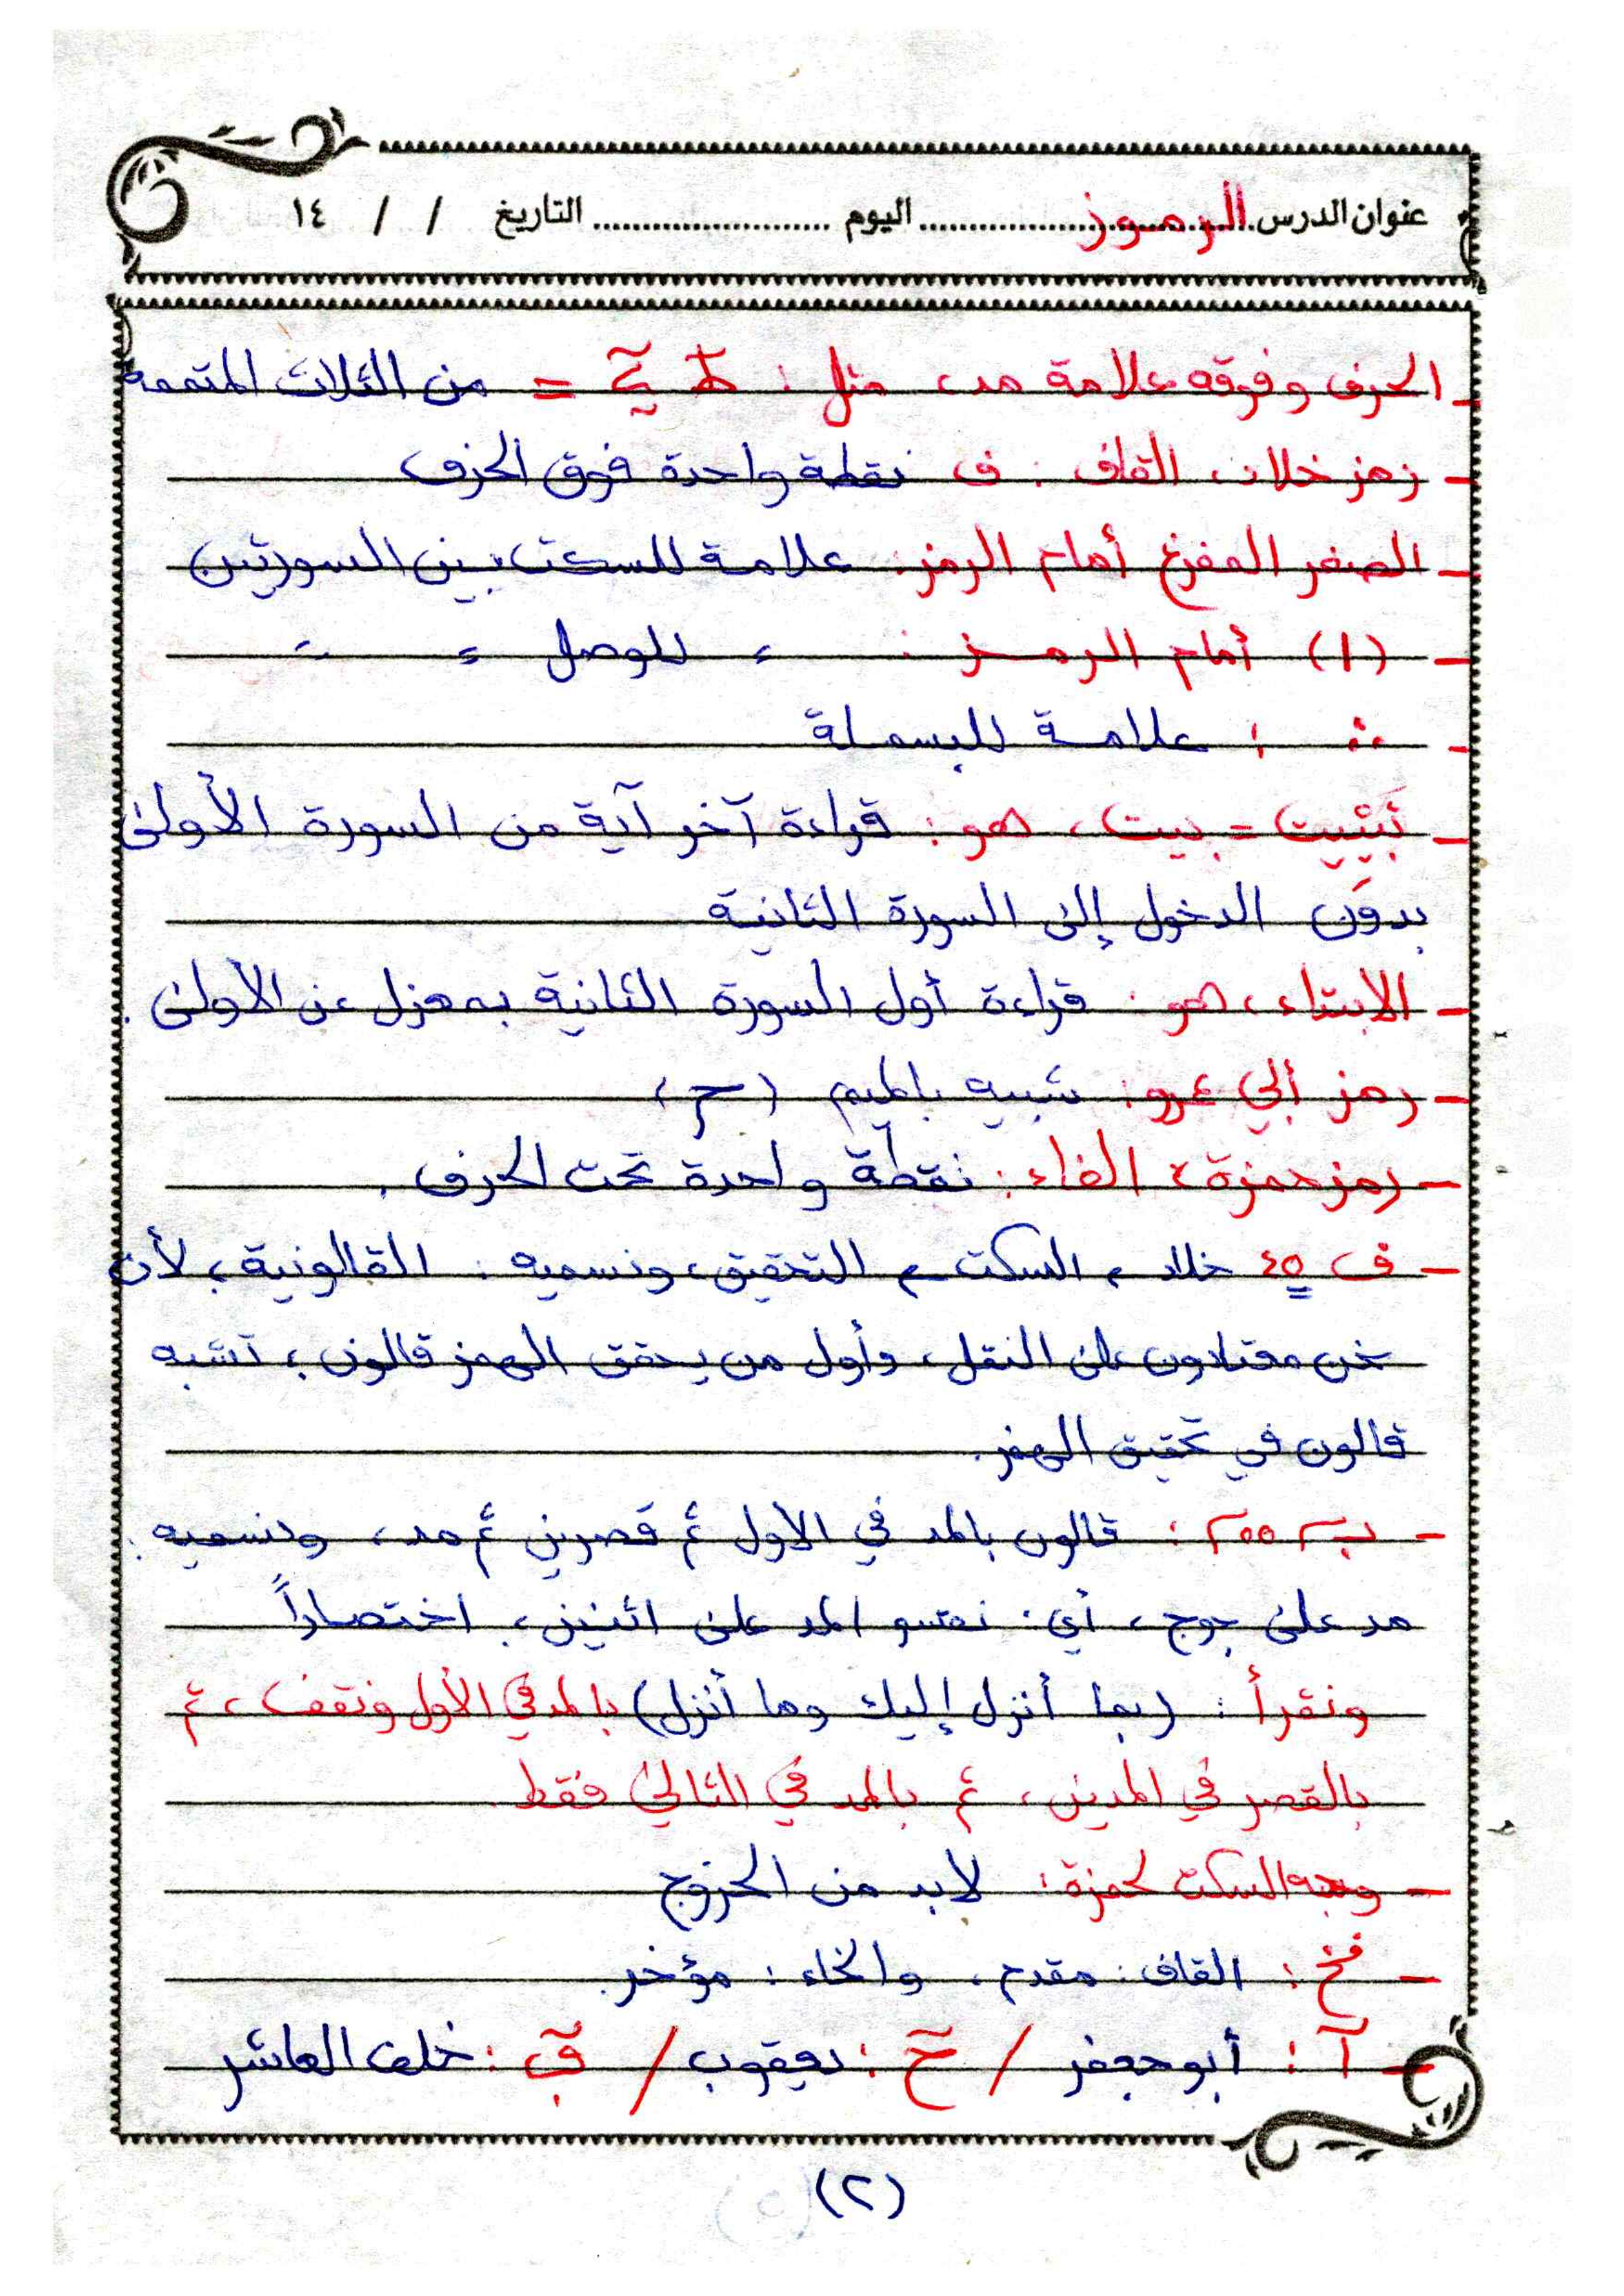 عنوان الدرس الرموز اليوم التاريخ / / ١٤
- الحرف وفوقه علامة مد، مثل : = من الثلاث المتممة
- رمز خلاد، القاف : ف نقطة واحدة فوق الحرف
- الصفر المفرغ أمام الرمز : علامة للسكت بين السورتين
- (١) أمام الرمز : = للوصل = =
- ∴ : علامة للبسملة
- تَبْيِيت = بيت، هو : قراءة آخر آية من السورة الأولى
بدون الدخول إلى السورة الثانية
- الابتداء، هو : قراءة أول السورة الثانية بمعزل عن الأولى .
- رمز أبي عمرو : شبيه بالميم (ح)
- رمز حمزة، الفاء : نقطة واحدة تحت الحرف .
- ف خلاد السكت التحقيق، ونسميه : القالونية، لأن
نحن معتادون على النقل، وأول من يحقق الهمز قالون، تشبه
قالون في تحقيق الهمز.
- ب : قالون بالمد في الأول ثم قصرين ثم مد، ونسميه :
مد على جوج، أي : نقسو المد على اثنين، اختصاراً
ونقرأ : (بما أنزل إليك وما أنزل) بالمد في الأول ونقف، ثم
بالقصر في المدين، ثم بالمد في الثاني فقط.
- وجه السكت لحمزة : لابد من الخروج
- : القاف : مقدم، والخاء : مؤخر.
- آ : أبو جعفر / حٓ : يعقوب / : خلف العاشر
(٢)